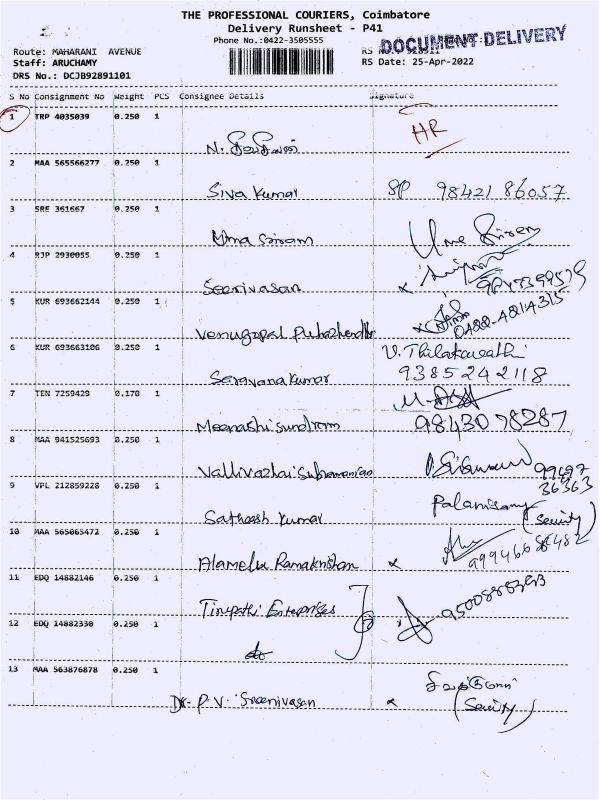 THE PROFESSIONAL COURIERS, Coimbatore
Delivery Runsheet - P41
Phone No.:0422-3505555
DOCUMENT DELIVERY
Route: MAHARANI AVENUE
Staff: ARUCHAMY
RS Date: 25-Apr-2022
DRS No.: DCJB92891101
S No Consignment No Weight PCS Consignee Details Signature
1 TRP 4035039 0.250 1
HR
2 MAA 565566277 0.250 1
Siva Kumar SP 98421 86057
3 SRE 361667 0.250 1
Uma Sriram
4 RJP 2930055 0.250 1
Seenivasan x
5 KUR 693662144 0.250 1
Venugopal x 0422-4214315
6 KUR 693663106 0.250 1
V. Thilakavathi
Saravana Kumar 9385242118
7 TEN 7259429 0.170 1
Meenashi Sundram 9843078287
8 MAA 941525693 0.250 1
9 VPL 212859228 0.250 1
Palamisamy
Satheesh Kumar (Security)
10 MAA 565065472 0.250 1
Alamelu Ramakrishan x
11 EDQ 14882146 0.250 1
Tirupathi Enterprises
12 EDQ 14882330 0.250 1
13 MAA 563876878 0.250 1
Dr. P.V. Sreenivasan x (Security)